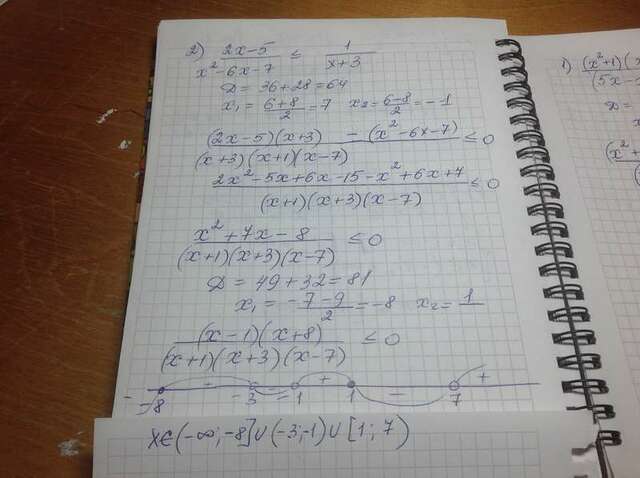 2) (2x-5)/(x²-6x-7) ≤ 1/(x+3)
D = 36+28=64
x₁ = (6+8)/2 = 7  x₂ = (6-8)/2 = -1
((2x-5)(x+3) - (x²-6x-7))/((x+3)(x+1)(x-7)) ≤ 0
(2x²-5x+6x-15-x²+6x+7)/((x+1)(x+3)(x-7)) ≤ 0
(x²+7x-8)/((x+1)(x+3)(x-7)) ≤ 0
D = 49+32=81
x₁ = (-7-9)/2 = -8  x₂ = 1
((x-1)(x+8))/((x+1)(x+3)(x-7)) ≤ 0
+ - + - +
-8 -3 -1 1 7
x∈(-∞;-8]∪(-3;-1)∪[1;7)
1) (x²+1)(x
(5x-
D =
x
(x²+